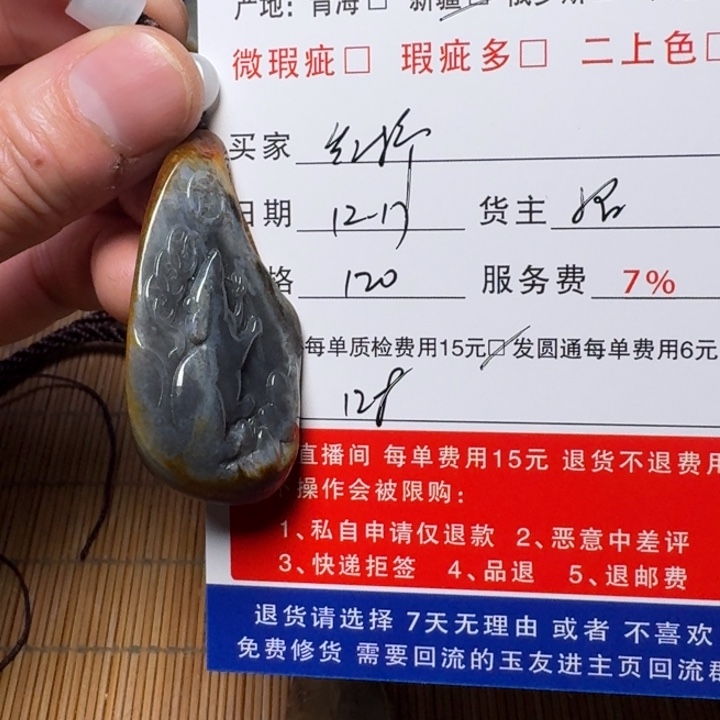 产地：青海□ 新疆□ 俄罗斯
微瑕疵□ 瑕疵多□ 二上色□
买家
日期 12-17 货主
格 120 服务费 7%
每单质检费用15元□ 发圆通每单费用6元
128
直播间 每单费用15元 退货不退费用
操作会被限购：
1、私自申请仅退款 2、恶意中差评
3、快递拒签 4、品退 5、退邮费
退货请选择 7天无理由 或者 不喜欢
免费修货 需要回流的玉友进主页回流群